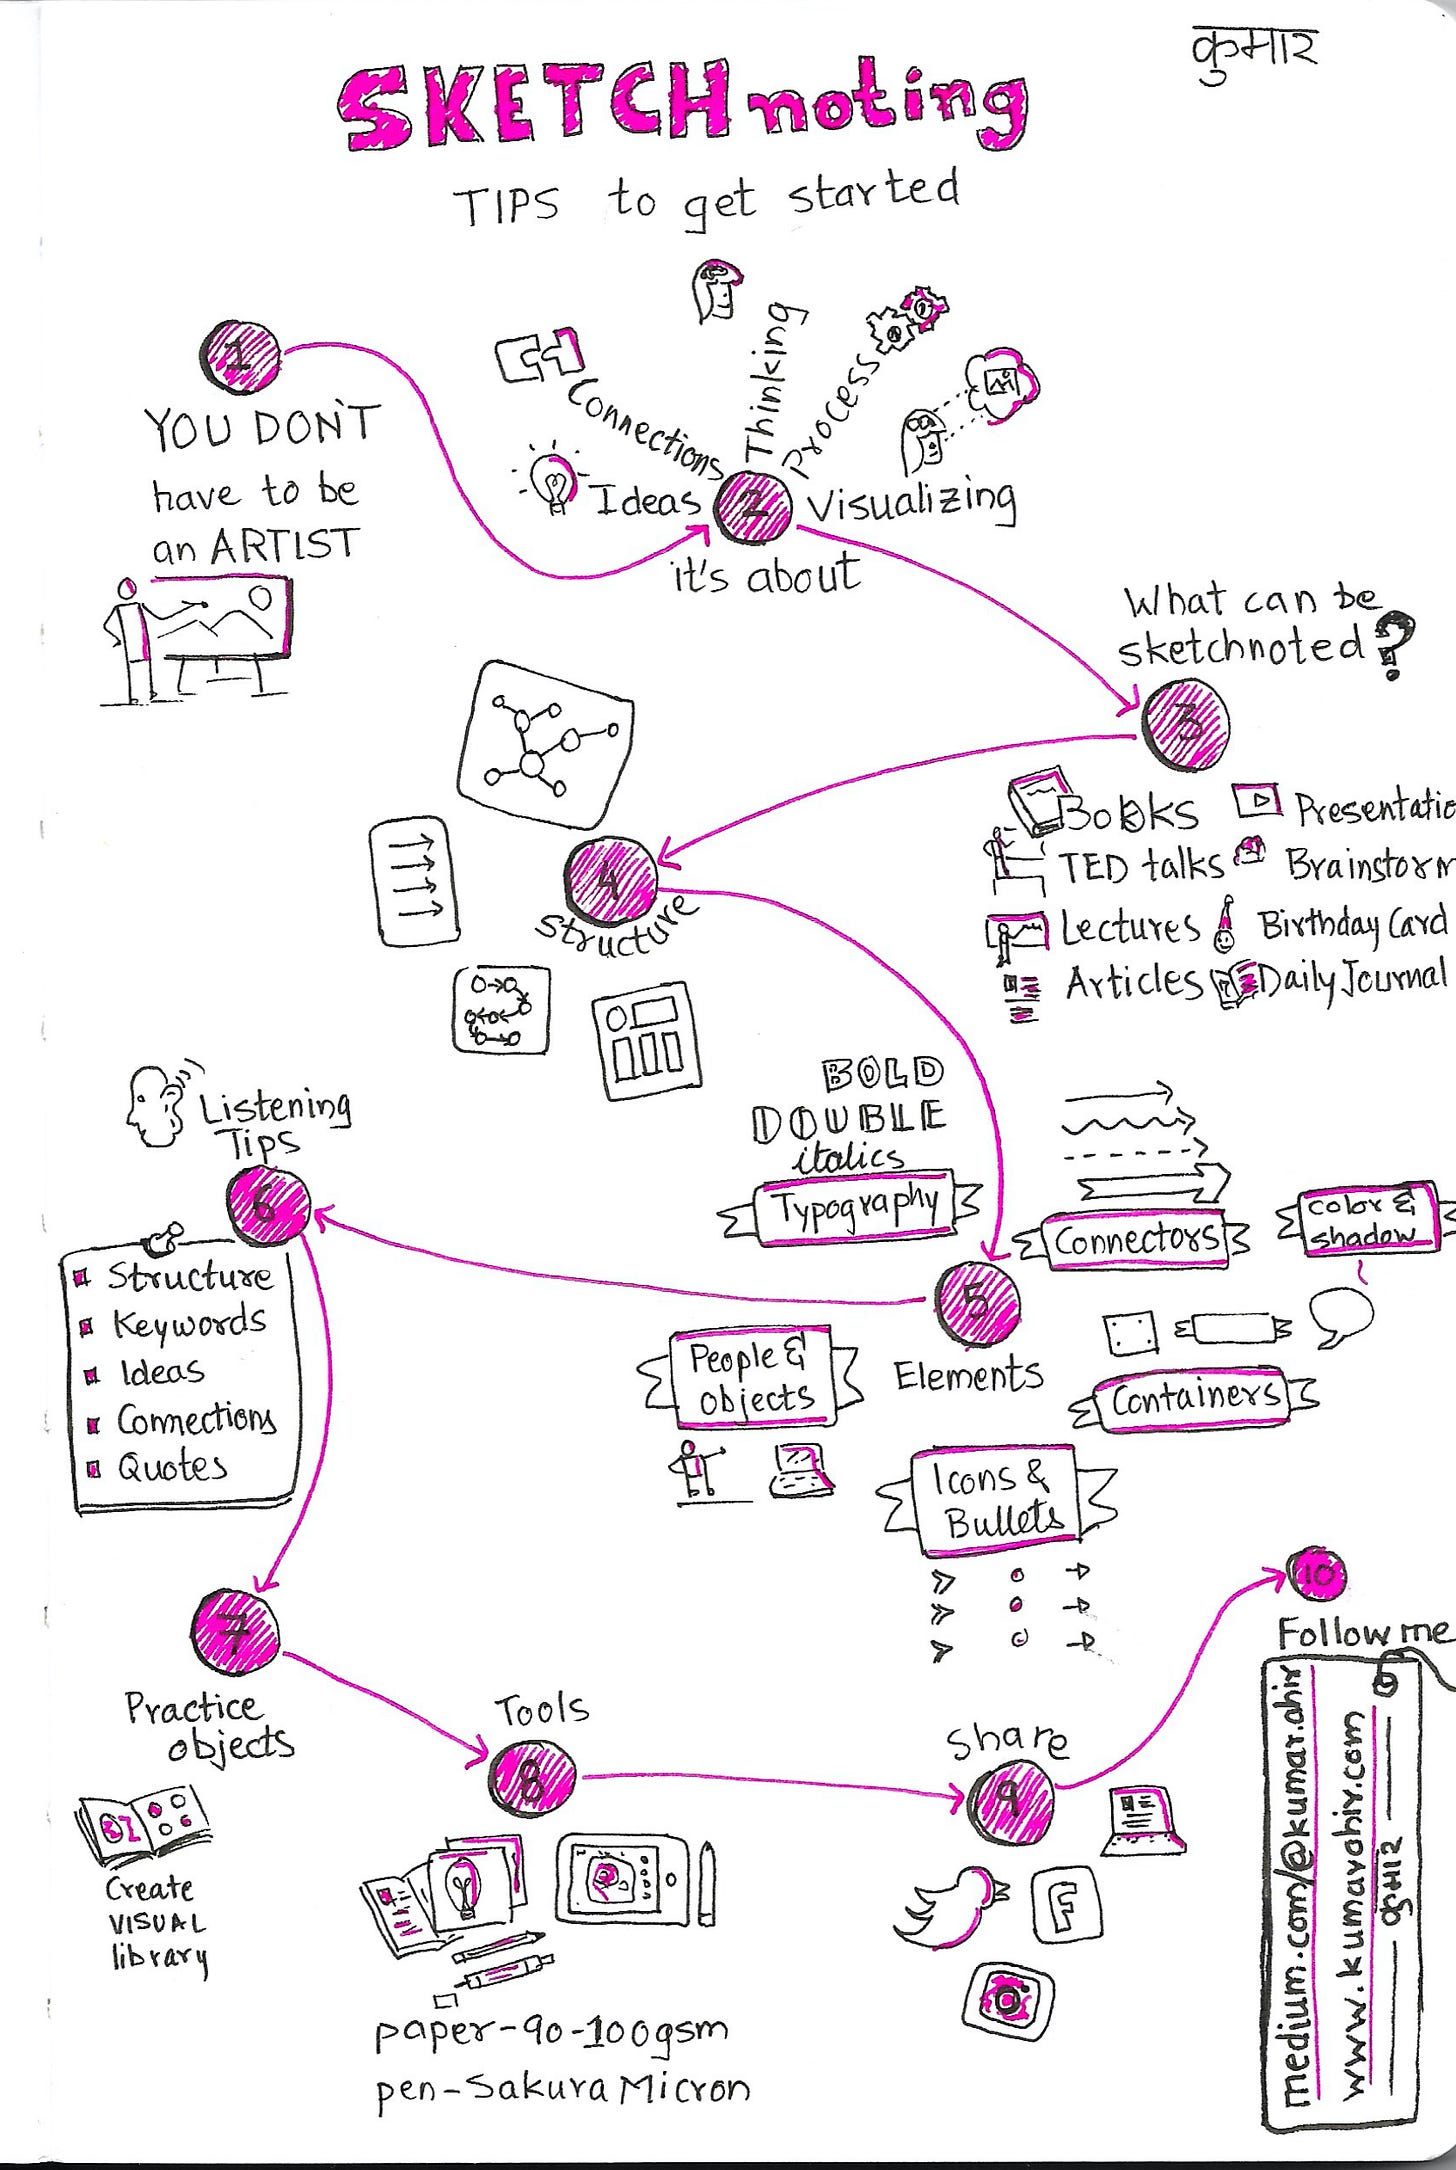 कुमार
SKETCHnoting
TIPS to get started
1
YOU DON'T
have to be
an ARTIST
Ideas
Connections
Thinking
Process
Visualizing
2
it's about
What can be
sketchnoted?
3
Books
Presentatio
TED talks
Brainstorm
Lectures
Birthday Card
Articles
Daily Journal
4
Structure
BOLD
DOUBLE
italics
Typography
Connectors
color &
shadow
5
Elements
People &
objects
Containers
Icons &
Bullets
Listening
Tips
6
Structure
Keywords
Ideas
Connections
Quotes
7
Practice
objects
Create
VISUAL
library
Tools
8
paper-90-100gsm
pen-Sakura Micron
Share
9
F
10
Follow me
medium.com/@kumar.ahir
www.kumarahir.com